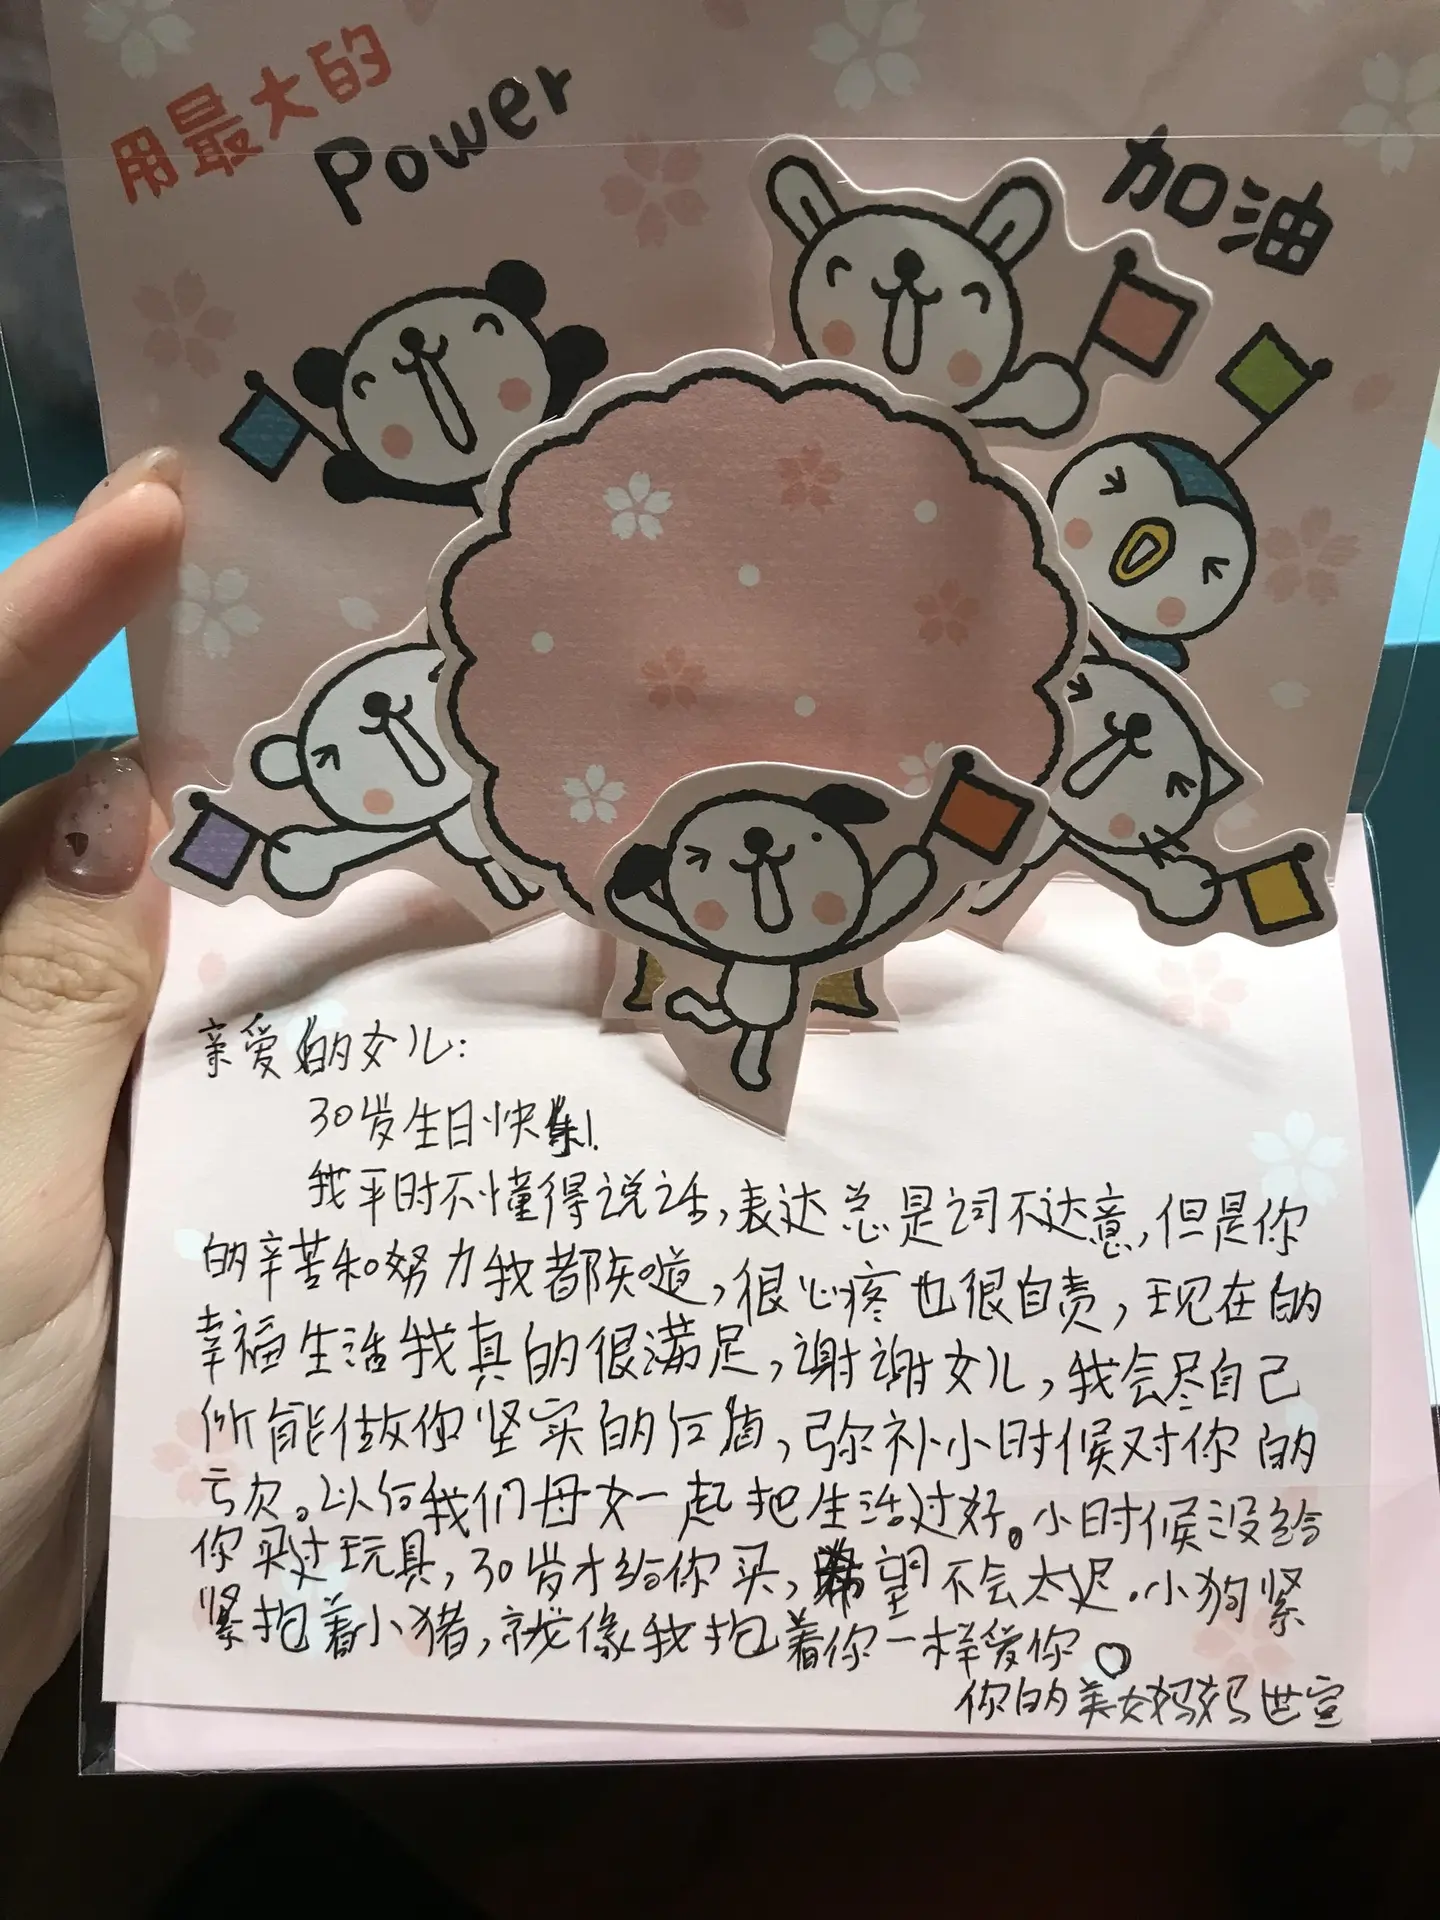 用最大的
Power
加油
亲爱的女儿：
30岁生日快乐！
我平时不懂得说话，表达总是词不达意，但是你
的辛苦和努力我都知道，很心疼也很自责，现在的
幸福生活我真的很满足，谢谢女儿，我会尽自己
所能做你坚实的后盾，弥补小时候对你的
亏欠。以后我们母女一起把生活过好。小时候没给
你买过玩具，30岁才给你买，希望不会太迟。小狗紧
紧抱着小猪，就像我抱着你一样爱你。
你的美女妈妈世宣